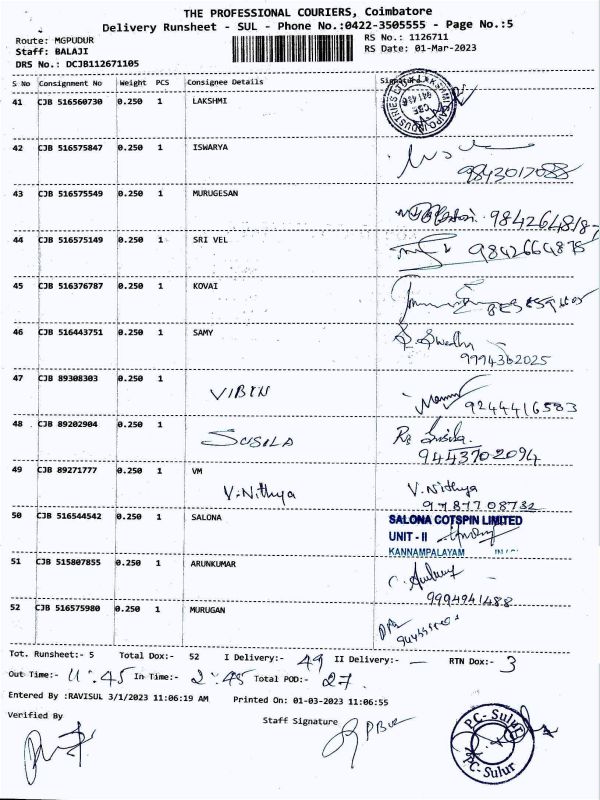 THE PROFESSIONAL COURIERS, Coimbatore
Delivery Runsheet - SUL - Phone No.:0422-3505555 - Page No.:5
Route: MGPUDUR RS No.: 1126711
Staff: BALAJI RS Date: 01-Mar-2023
DRS No.: DCJB112671105
S No Consignment No Weight PCS Consignee Details Signature
41 CJB 516560730 0.250 1 LAKSHMI
42 CJB 516575847 0.250 1 ISWARYA
9843017088
43 CJB 516575549 0.250 1 MURUGESAN
9842648187
44 CJB 516575149 0.250 1 SRI VEL 9842664875
45 CJB 516376787 0.250 1 KOVAI
46 CJB 516443751 0.250 1 SAMY
9994362025
47 CJB 89308303 0.250 1 VIBIN
9244416583
48 CJB 89202904 0.250 1 SUSILA
9443702094
49 CJB 89271777 0.250 1 VM
V.Nithya V.Nithya
50 CJB 516544542 0.250 1 SALONA SALONA COTSPIN LIMITED
UNIT - II
KANNAMPALAYAM
51 CJB 515807855 0.250 1 ARUNKUMAR
9994941488
52 CJB 516575980 0.250 1 MURUGAN
Tot. Runsheet:- 5 Total Dox:- 52 I Delivery:- 49 II Delivery:- — RTN Dox:- 3
Out Time:- 11.45 In Time:- 2.45 Total POD:- 27
Entered By :RAVISUL 3/1/2023 11:06:19 AM Printed On: 01-03-2023 11:06:55
Verified By Staff Signature
PC- Sulur
PC-Sulur